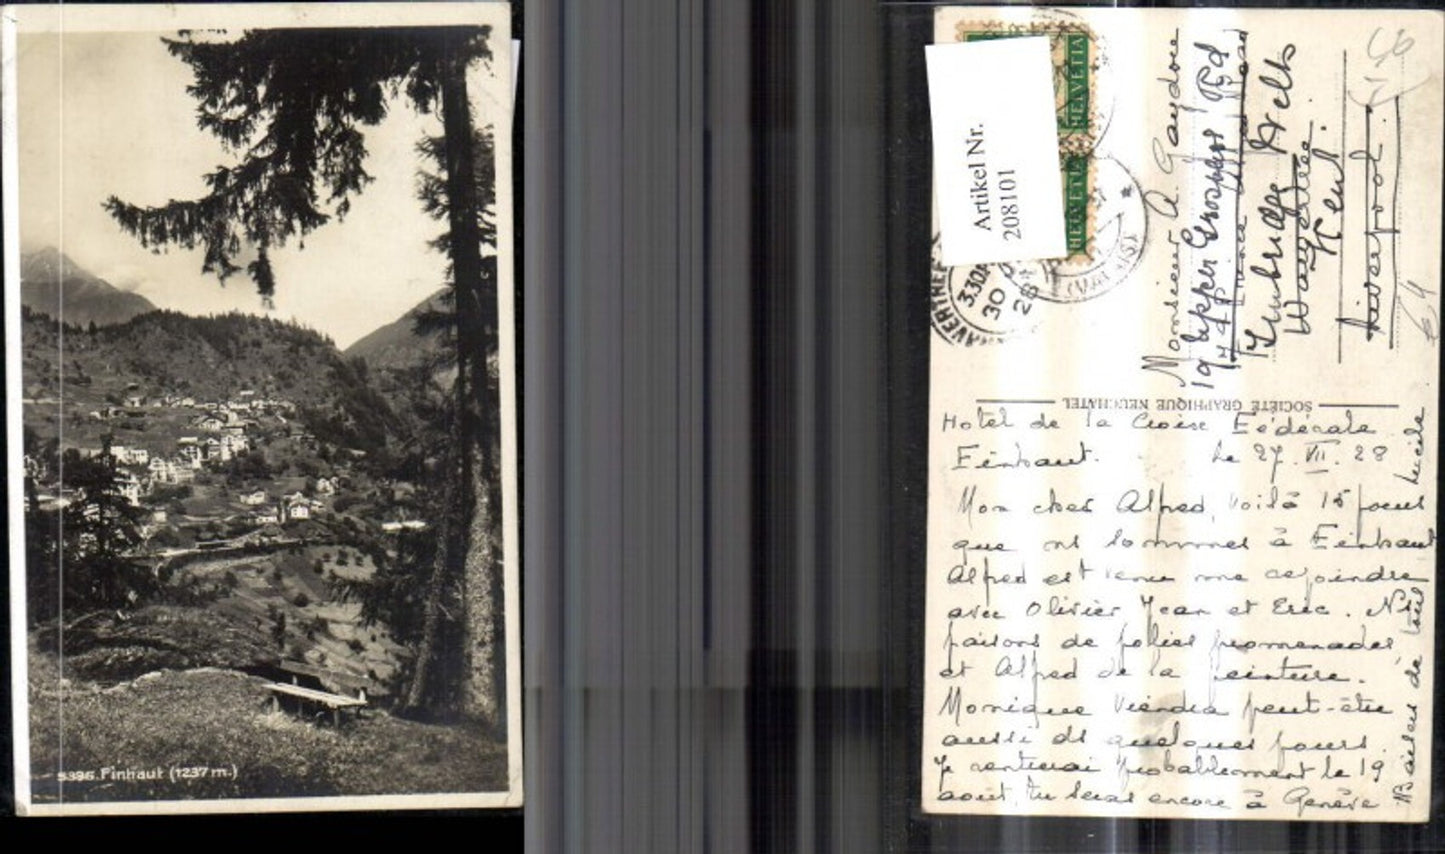 5396. Finhaut (1237 m.)
Artikel Nr.
208101
HELVETIA
HELVETIA
(VALAIS)
3.30
30
28
Monsieur A. Gaydore
19 Upper Grosvenor Rd
Tunbridge Wells
Kent.
Liverpool.
SOCIÉTÉ GRAPHIQUE NEUCHATEL
Hotel de la Croix Fédérale
Finhaut. Le 27. VII. 28
Mon cher Alfred, voilà 15 jours
que ns sommes à Finhaut
Alfred est venu me rejoindre
avec Olivier Jean et Eric. Ns
faisons de jolies promenades
et Alfred de la peinture.
Monique viendra peut-être
aussi ds quelques jours.
Je rentrerai probablement le 19
août, tu seras encore à Genève
Baisers de tous de Lucile